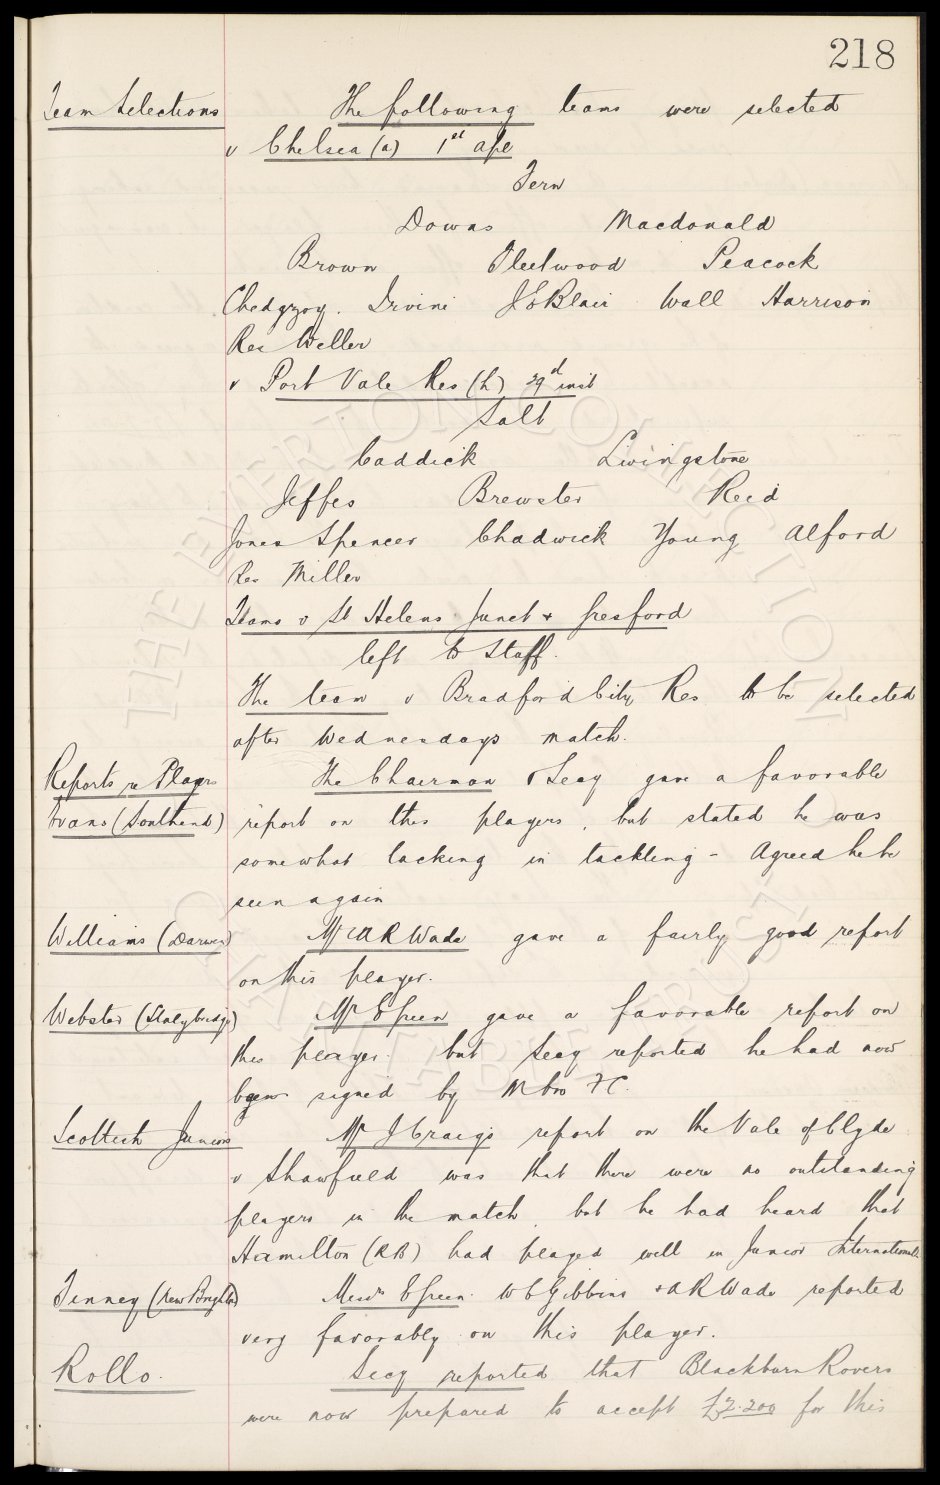 218
Team Selections The following teams were selected
v Chelsea (a) 1st Apl
Fern
Downs Macdonald
Brown Fleetwood Peacock
Chedgzoy. Irvine J E Blair Wall Harrison
Res Weller
v Port Vale Res (h) 29th inst
Salt
Caddick Livingstone
Jeffes Brewster Reid
Jones Spencer Chadwick Young Alford
Res Miller
Teams v St Helens Junct + Gresford
left to Staff.
The team v Bradford City Res to be selected
after Wednesdays match.
Reports re Players The Chairman & Secy gave a favorable
Evans (Southend) report on this players, but stated he was
somewhat lacking in tackling - Agreed he be
seen again
Williams (Darwen) Mr A R Wade gave a fairly good report
on this player.
Webster (Stalybridge) Mr E Green gave a favorable report on
this player. but Secy reported he had now
been signed by Mbro FC.
Scottish Juniors Mr J Craigs report on the Vale of Clyde
v Shawfield was that there were no outstanding
players in the match, but he had heard that
Hamilton (RB) had played well in Junior Internationals
Tinney (New Brighton) Messrs E Green. W C Gibbins & A R Wade reported
very favorably on this player.
Rollo. Secy reported that Blackburn Rovers
were now prepared to accept £2.200 for this
THE EVERTON COLLECTION
CHARITABLE TRUST